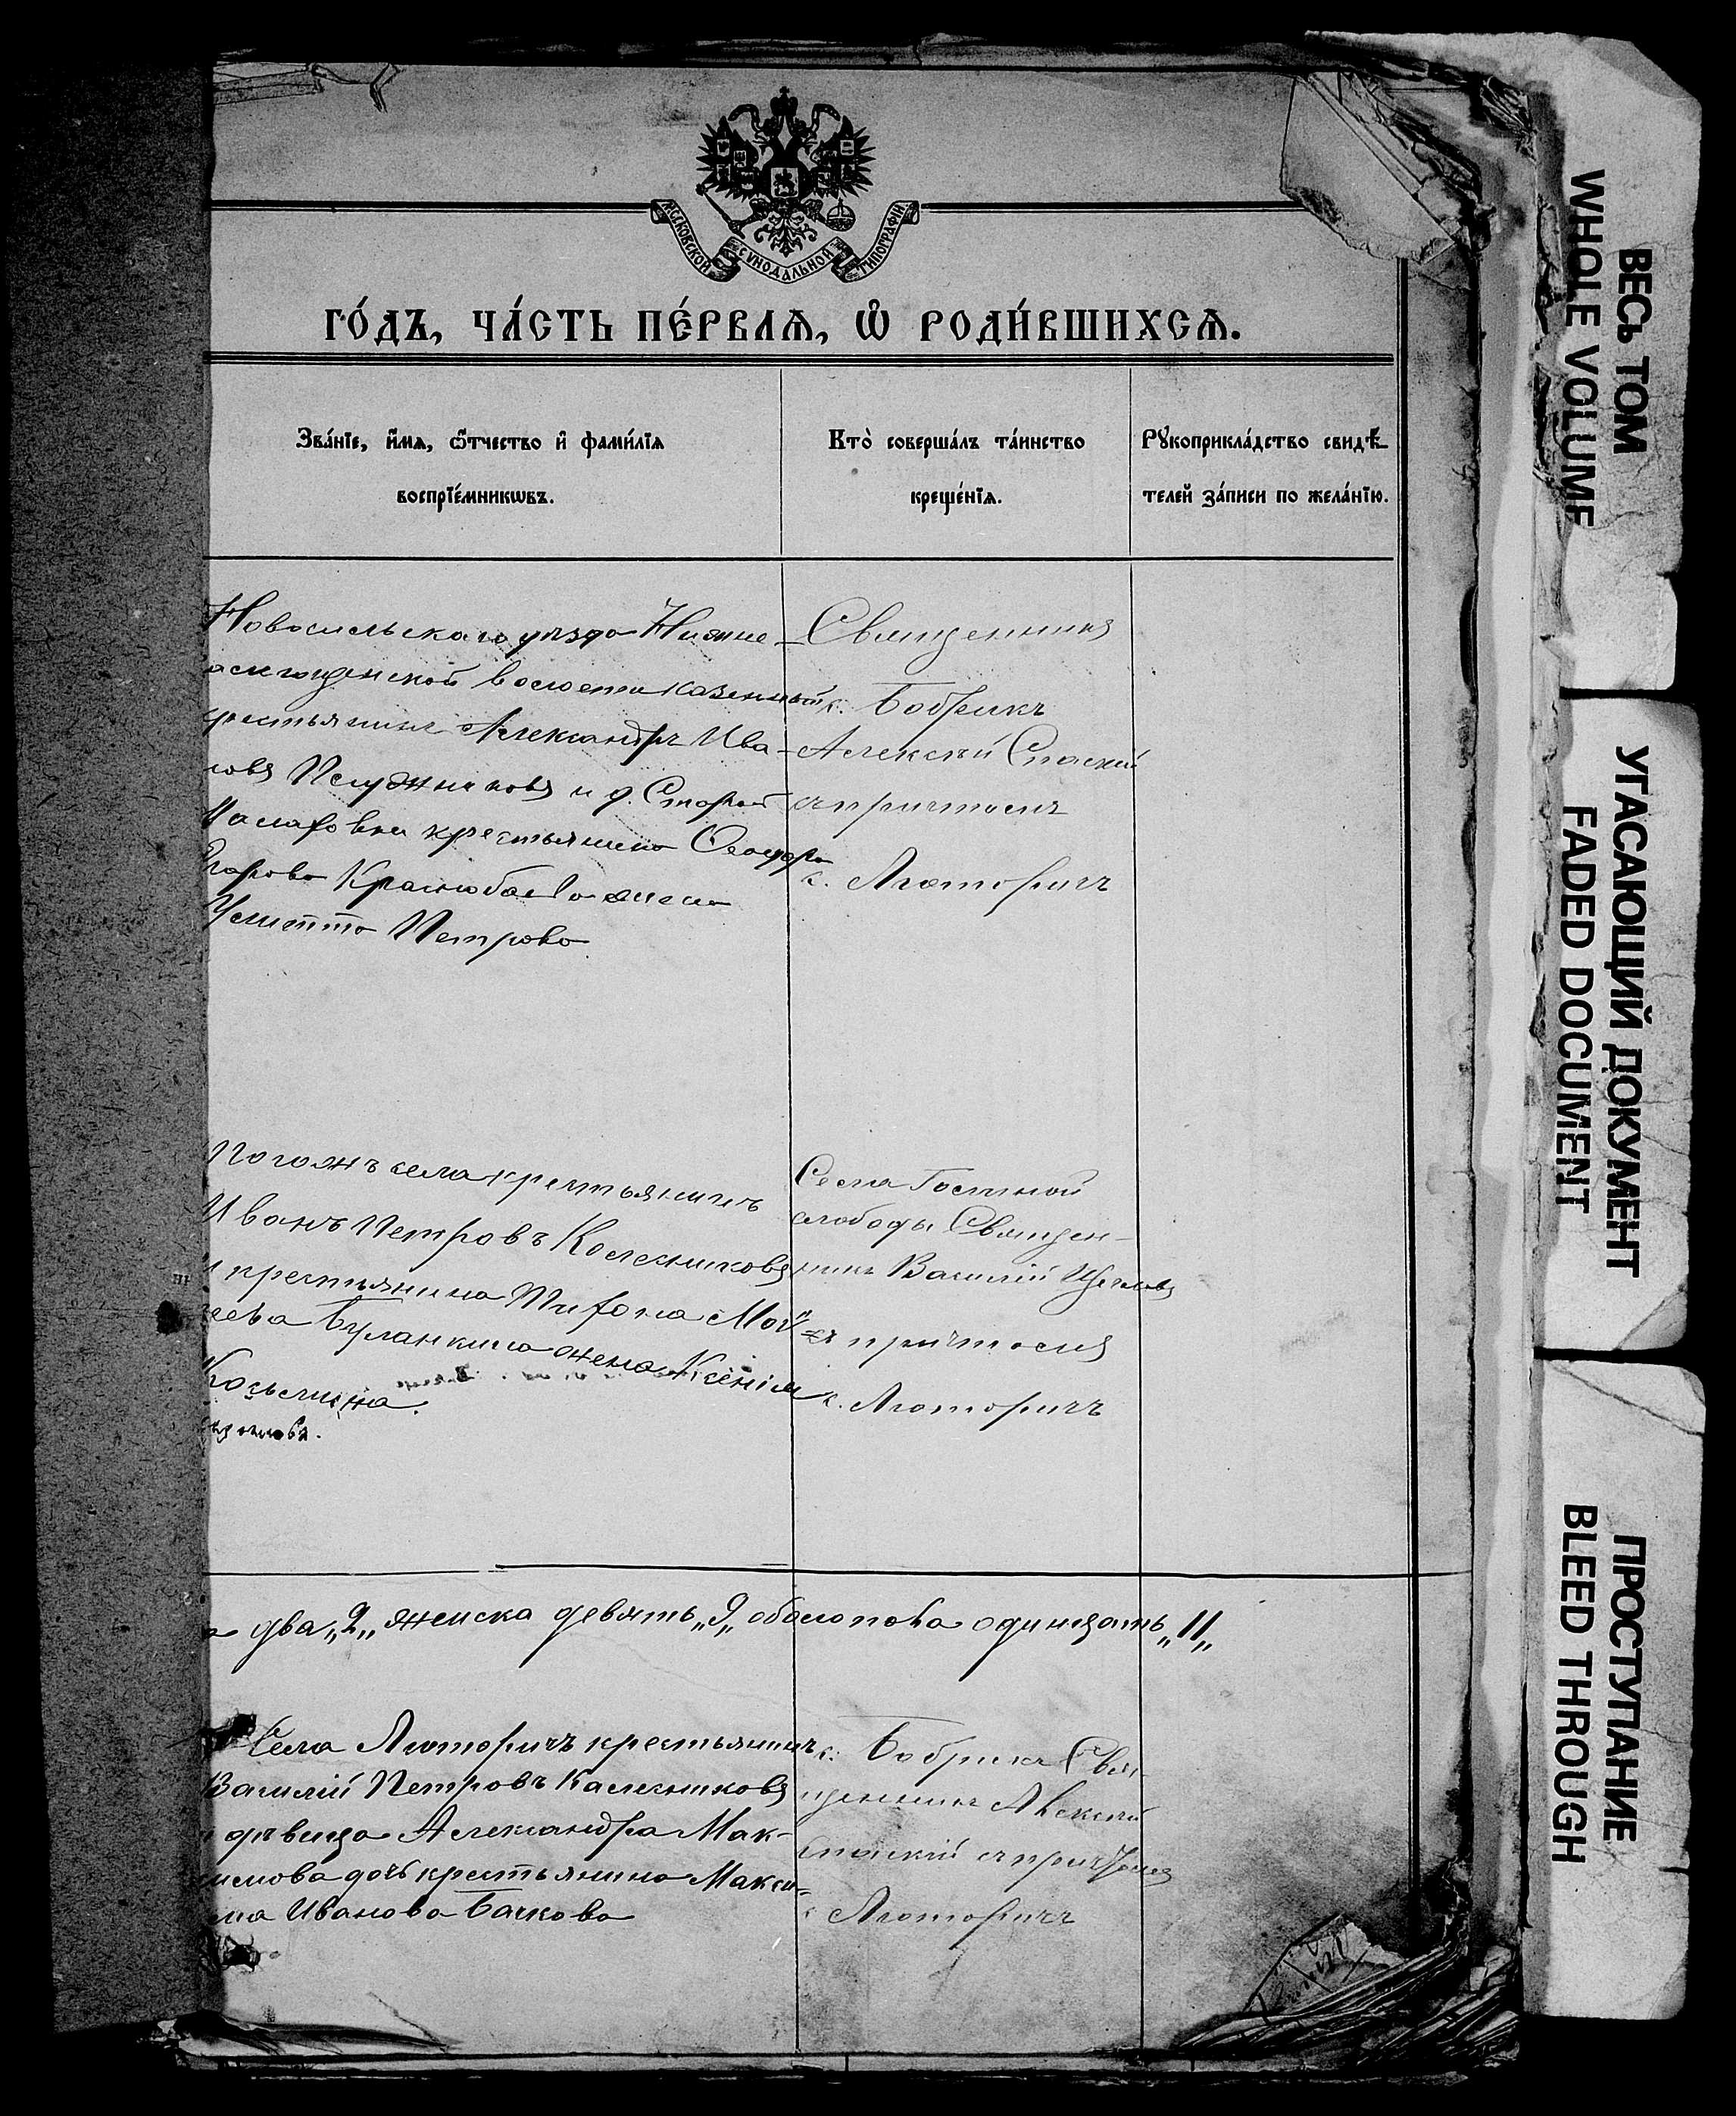 МОСКОВСКОЙ СѴНОДАЛЬНОЙ ТИПОГРАФІИ
ГО́ДЪ, ЧА́СТЬ ПЕ́РВАѦ, Ѽ РОДИ́ВШИХСѦ.
Зва́нїе, и҆́мѧ, ѻ҆́тчество и҆ фами́лїѧ
воспрїе́мникѡвъ.
Кто̀ соверша́лъ та́инство
креще́нїѧ.
Рꙋкоприкла́дство свидѣ-
телей за́писи по жела́нїю.
Новосильскаго уѣзда Нижне-
волости казенный
крестьянинъ Александръ Ива-
новъ и д. Старой
крестьянина Ѳеодора
Егорова жена
Петрова
Священникъ
с. Бобрикъ
Алексѣй Спаскій
съ причтомъ
с. Люторичъ
села крестьянинъ
Иванъ Петровъ Колесниковъ
и крестьянина Тихона Мой-
сеева Буланкина жена Ксенія
Козьмина.
Села Гостиной
слободы Священ-
никъ Василій Щегловъ
съ причтомъ
с. Люторичъ
два „2„ женска девять „9„ обоего пола одинцать „11„
Села Люторичъ крестьянинъ
Василій Петровъ Калесниковъ
и дѣвица Александра Мак-
симова дочь крестьянина Макси-
ма Иванова Бачкова
с. Бобрика Свя-
щенникъ Алексѣй
Спаскій съ причтомъ
с. Люторичъ
ВЕСЬ ТОМ
WHOLE VOLUME
УГАСАЮЩИЙ ДОКУМЕНТ
FADED DOCUMENT
ПРОСТУПАНИЕ
BLEED THROUGH